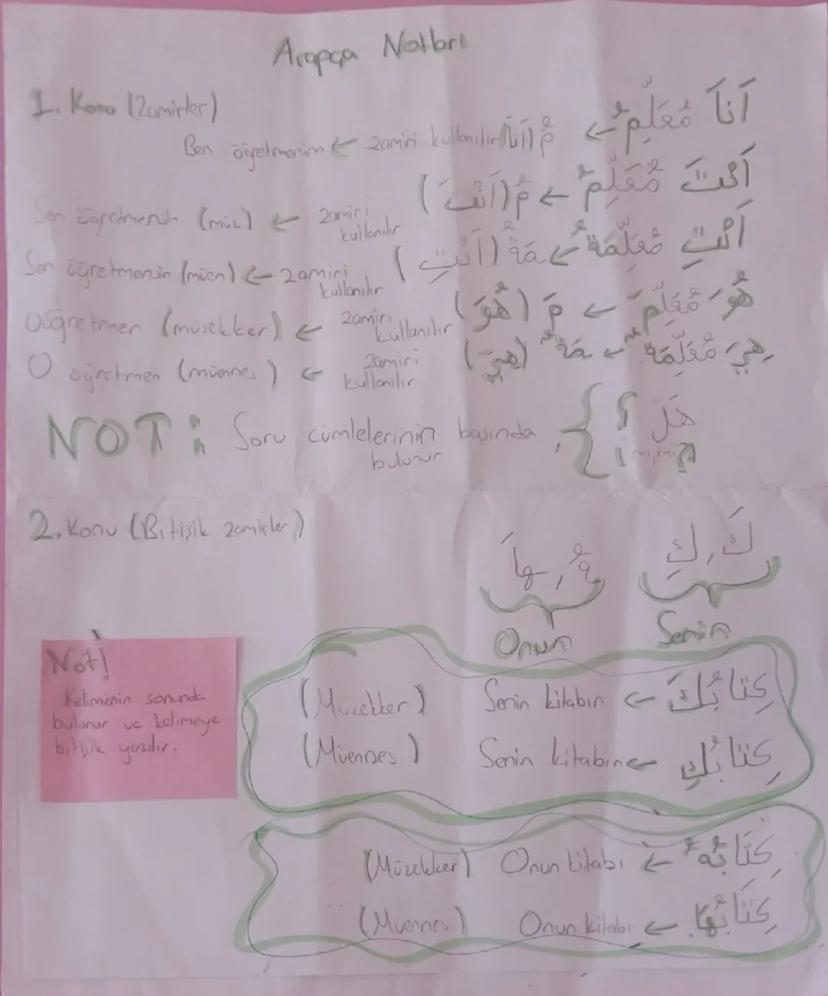 Arapça Notları
1. Konu (Zamirler)
أَنَا مُعَلِّمٌ ← مٌ (أَنَا) zamiri kullanılır ← Ben öğretmenim
أَنْتَ مُعَلِّمٌ ← مٌ (أَنْتَ) zamiri kullanılır ← Sen öğretmensin (müz)
أَنْتِ مُعَلِّمَةٌ ← مَةٌ (أَنْتِ) zamiri kullanılır ← Sen öğretmensin (müen)
هُوَ مُعَلِّمٌ ← مٌ (هُوَ) zamiri kullanılır ← O öğretmen (müzekker)
هِيَ مُعَلِّمَةٌ ← مَةٌ (هِيَ) zamiri kullanılır ← O öğretmen (müennes)
NOT: Soru cümlelerinin başında bulunur, { هَلْ ؟
mı, mi
2. Konu (Bitişik zamirler)
كَ, كِ
هُ, هَا
Senin
Onun
Not!
Kelimenin sonunda
bulunur ve kelimeye
bitişik yazılır.
كِتَابُكَ ← Senin kitabın (Müzekker)
كِتَابُكِ ← Senin kitabın (Müennes)
كِتَابُهُ ← Onun kitabı (Müzekker)
كِتَابُهَا ← Onun kitabı (Müennes)